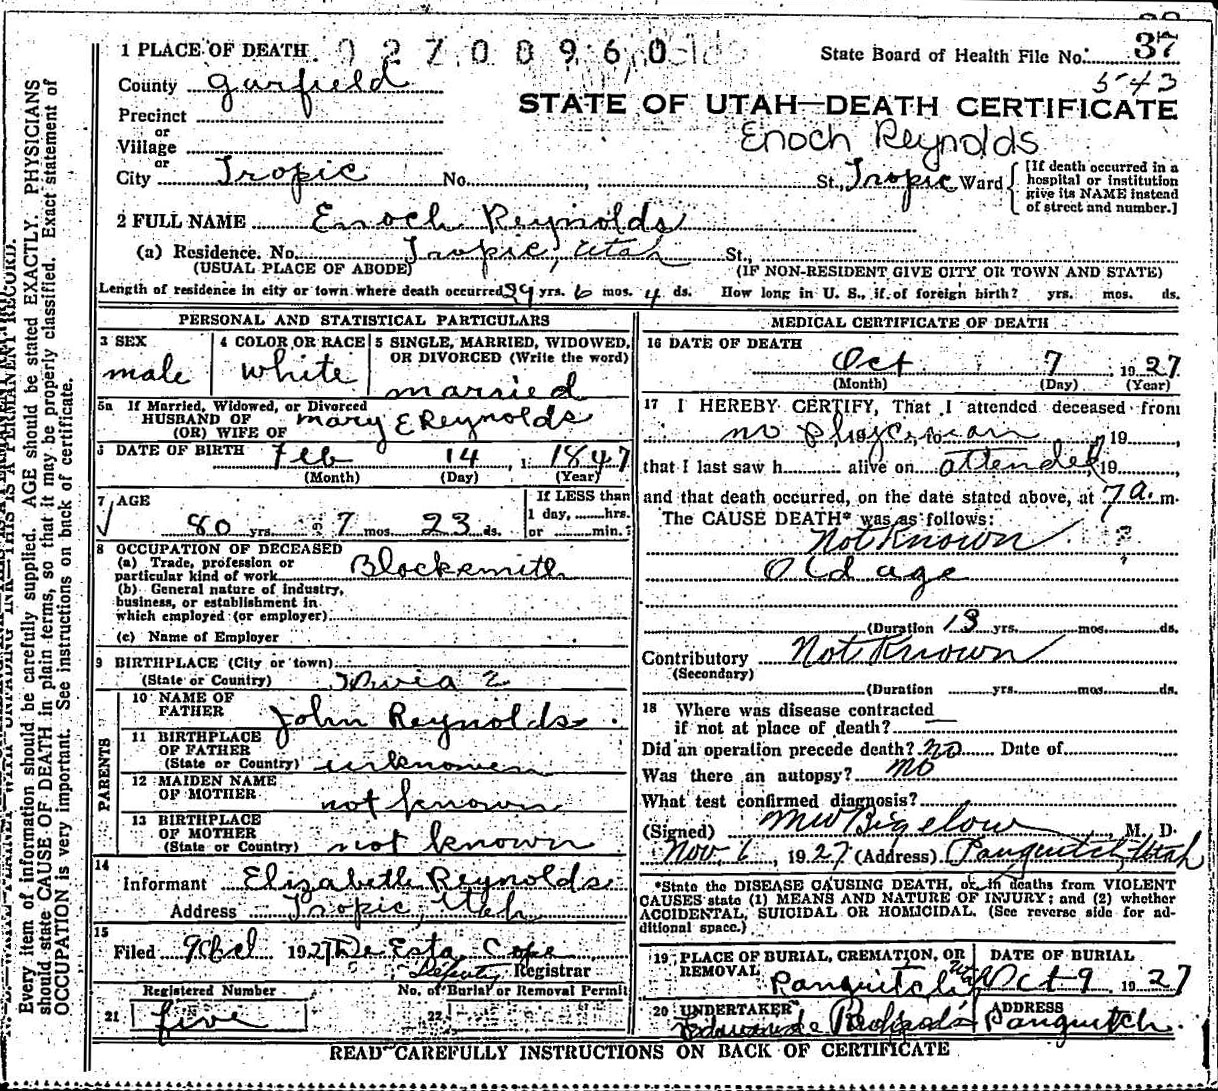 37
1 PLACE OF DEATH 02700960 State Board of Health File No.
543
County Garfield
STATE OF UTAH—DEATH CERTIFICATE
Precinct
or
Enoch Reynolds
Village
or
City Tropic No. St., Tropic Ward
[If death occurred in a hospital or institution give its NAME instead of street and number.]
2 FULL NAME Enoch Reynolds
(a) Residence. No. Tropic, Utah St.,
(USUAL PLACE OF ABODE) (IF NON-RESIDENT GIVE CITY OR TOWN AND STATE)
Length of residence in city or town where death occurred 39 yrs. 6 mos. 4 ds. How long in U. S., if of foreign birth? yrs. mos. ds.
PERSONAL AND STATISTICAL PARTICULARS
3 SEX
male
4 COLOR OR RACE
white
5 SINGLE, MARRIED, WIDOWED,
OR DIVORCED (Write the word)
married
5a If Married, Widowed, or Divorced
HUSBAND OF
(OR) WIFE OF Mary E Reynolds
6 DATE OF BIRTH Feb 14, 1847
(Month) (Day) (Year)
7 AGE
80 yrs. 7 mos. 23 ds.
If LESS than
1 day, hrs.
or min.
8 OCCUPATION OF DECEASED
(a) Trade, profession or
particular kind of work Blacksmith
(b) General nature of industry,
business, or establishment in
which employed (or employer)
(c) Name of Employer
9 BIRTHPLACE (City or town)
(State or Country)
PARENTS
10 NAME OF
FATHER John Reynolds
11 BIRTHPLACE
OF FATHER
(State or Country) unknown
12 MAIDEN NAME
OF MOTHER not known
13 BIRTHPLACE
OF MOTHER
(State or Country) not known
14
Informant Elizabeth Reynolds
Address Tropic, Utah
15
Filed 1927 De Esta Cope
Deputy Registrar
Registered Number No. of Burial or Removal Permit
21 five 22
MEDICAL CERTIFICATE OF DEATH
16 DATE OF DEATH
Oct 7, 1927
(Month) (Day) (Year)
17 I HEREBY CERTIFY, That I attended deceased from
no physician to 19
that I last saw h alive on attended, 19
and that death occurred, on the date stated above, at 7 a. m.
The CAUSE DEATH* was as follows:
Not Known
Old age
(Duration yrs. mos. ds.
Contributory Not Known
(Secondary)
(Duration yrs. mos. ds.
18 Where was disease contracted
if not at place of death?
Did an operation precede death? no Date of
Was there an autopsy? no
What test confirmed diagnosis?
(Signed) MW Bigelow, M. D.
Nov. 6, 1927 (Address) Panguitch, Utah
*State the DISEASE CAUSING DEATH, or in deaths from VIOLENT
CAUSES state (1) MEANS AND NATURE OF INJURY; and (2) whether
ACCIDENTAL, SUICIDAL OR HOMICIDAL. (See reverse side for ad-
ditional space.)
19 PLACE OF BURIAL, CREMATION, OR
REMOVAL
Panguitch
DATE OF BURIAL
Oct 9 1927
20 UNDERTAKER
ADDRESS
Panguitch
READ CAREFULLY INSTRUCTIONS ON BACK OF CERTIFICATE
Every item of information should be carefully supplied. AGE should be stated EXACTLY. PHYSICIANS
should state CAUSE OF DEATH in plain terms, so that it may be properly classified. Exact statement of
OCCUPATION is very important. See instructions on back of certificate.